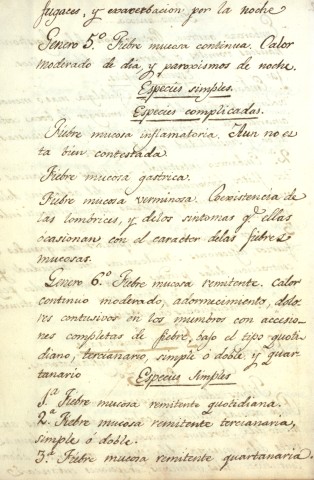 fugaces, y exacerbacion por la noche
Genero 5.º Fiebre mucosa continua. Calor
moderado de dia, y paroxismos de noche.
Especies simples.
Especies complicadas.
Fiebre mucosa inflamatoria. Aun no es
ta bien contestada
Fiebre mucosa gastrica.
Fiebre mucosa verminosa. Coexistencia de
las lombrices, y delos sintomas q.e ellas
ocasionan con el caracter delas fiebres
mucosas.
Genero 6.º Fiebre mucosa remitente. Calor
continuo moderado, adormecimiento, dolo
res contusivos en los miembros con accesio
nes completas de fiebre, bajo el tipo quoti
diano, tercianario, simple ó doble, y quar
tanario
Especies simples
1.ª Fiebre mucosa remitente quotidiana.
2.ª Fiebre mucosa remitente tercianaria,
simple ó doble.
3.ª Fiebre mucosa remitente quartanaria.